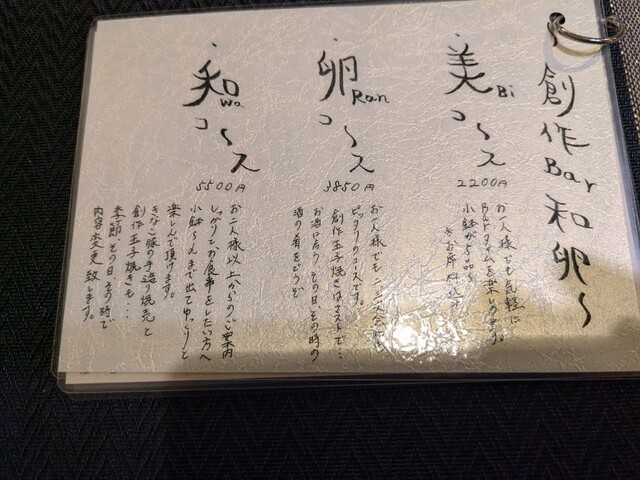 創作Bar和卵〜
・美Biコース
2200円
お一人様でも気軽に
Barタイムを楽しめます。
小鉢が5品〜
※お席料込み
・卵Ranコース
3850円
お一人様でも 二、三人会にも
ピッタリのコースです。
創作玉子焼きはマストで…
お酒に合う、その日、その時の
酒の肴をどうぞ
・和Waコース
5500円
お二人様以上からのご案内
しっかりとお食事をしたい方へ
小鉢〜〆まで出てゆっくりと
楽しんで頂けます。
きなこ豚の手造り焼売と
創作玉子焼きも…
季節、その日その時で
内容変更致します。